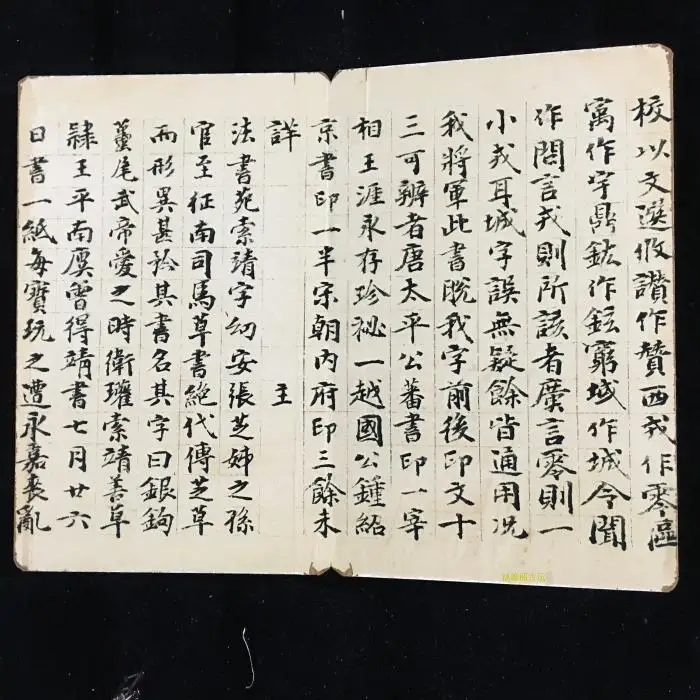 校以文選攸讃作贊西戎作零區
寓作宇鼎鉉作鉉窮城作城今聞
作問言戎則所該者廣言零則一
小戎耳城字誤無疑餘皆通用况
我將軍此書脱我字前後印文十
三可辨者唐太平公蕃書印一宰
相王涯永存珍祕一越國公鍾紹
京書印一半宋朝内府印三餘未
詳 主
法書苑索靖字幼安張芝姊之孫
官至征南司馬草書絶代傳芝草
而形異甚矜其書名其字曰銀鉤
蠆尾武帝愛之時衛瓘索靖善草
隷王平南廙曾得靖書七月廿六
日書一紙每寳玩之遭永嘉喪亂